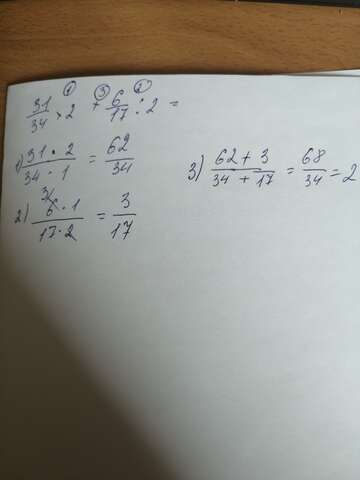 ① ③ ②
31/34 × 2 + 6/17 : 2 =
1) 31 · 2 / 34 · 1 = 62/34
2) 6 3 · 1 / 17 · 2 = 3/17
3) 62 + 3 / 34 + 17 = 68/34 = 2